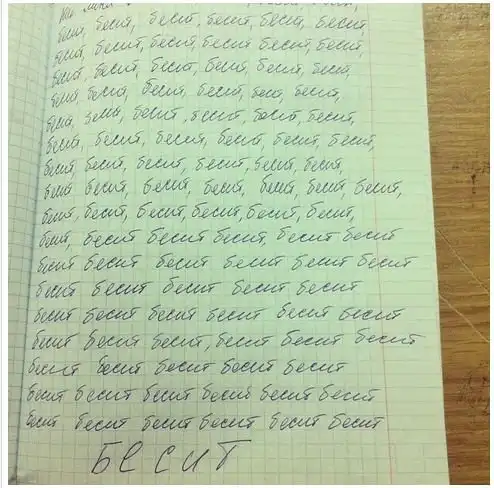 как меня
бесит, бесит, бесит, бесит, бесит, бесит,
бесит, бесит, бесит, бесит бесит, бесит,
бесит, бесит, бесит, бесит, бесит, бесит,
бесит бесит, бесит, бесит, бесит, бесит,
бесит, бесит, бесит, бесит, бесит, бесит,
бесит, бесит, бесит, бесит, бесит, бесит,
бесит, бесит, бесит, бесит, бесит, бесит,
бесит бесит, бесит, бесит, бесит, бесит, бесит,
бесит, бесит, бесит, бесит, бесит, бесит,
бесит, бесит бесит бесит, бесит бесит
бесит бесит бесит бесит бесит бесит
бесит бесит бесит бесит бесит
бесит бесит бесит бесит бесит бесит
бесит бесит бесит, бесит бесит бесит
бесит бесит бесит бесит бесит
бесит бесит бесит бесит бесит бесит
бесит бесит бесит бесит бесит бесит
БЕСИТ